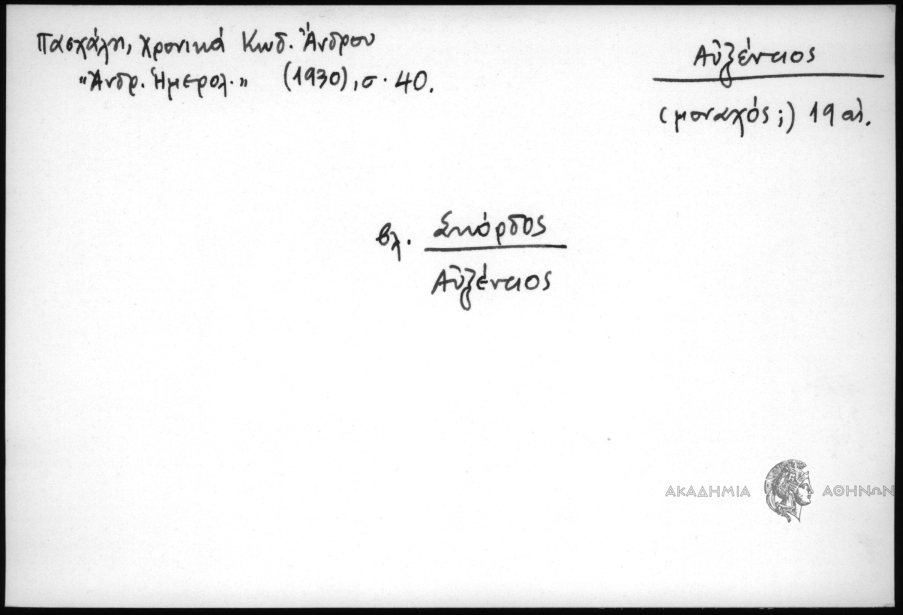 Πασχάλη, Χρονικά Κωδ. Ἄνδρου
"Ἀνδρ. Ἡμερολ." (1930), σ. 40.
Αὐξέντιος
(μοναχός;) 19 αἰ.
βλ. Σκόρδος
Αὐξέντιος
ΑΚΑΔΗΜΙΑ ΑΘΗΝΩΝ